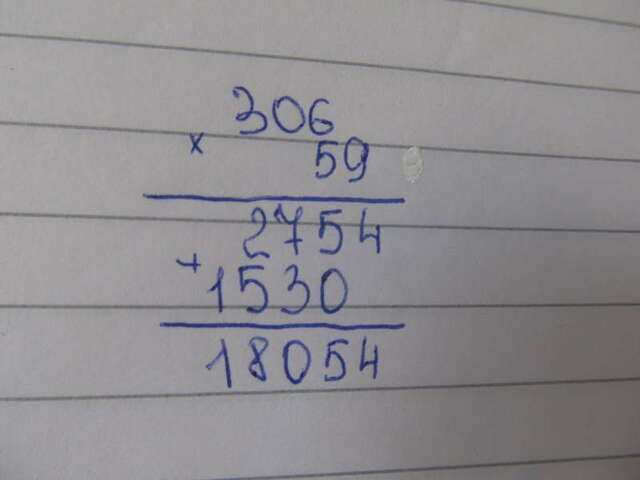 306
x 59
2754
+
1530
18054